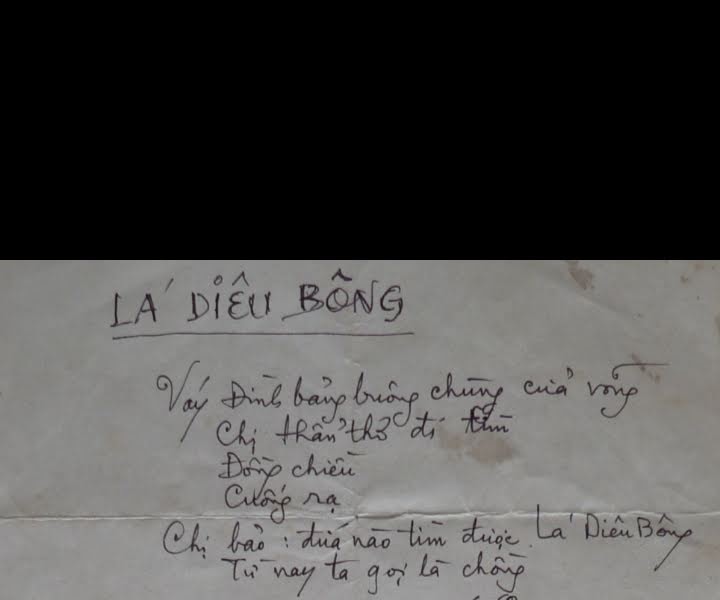 LÁ DIÊU BÔNG
Váy Đình bảng buông chùng cửa võng
Chị thẩn thơ đi tìm
Đồng chiều
Cuống rạ
Chị bảo : đứa nào tìm được Lá Diêu Bông
Từ nay ta gọi là chồng